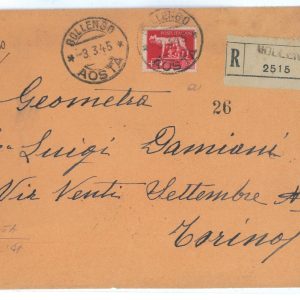 DOLLENGO
-3.3.45
AOSTA
R
2515
Geometra
26
Luigi Damiani
Via Venti Settembre
Torino